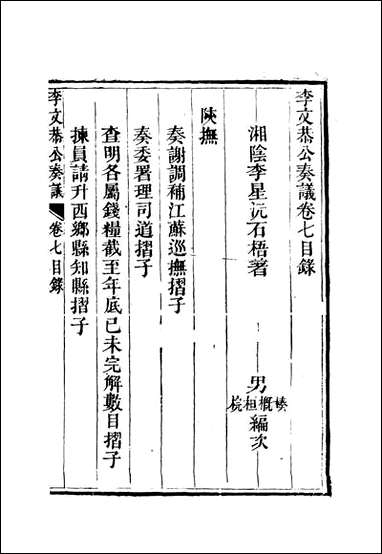 李文恭公奏議卷七目錄
湘陰李星沅石梧著
男
概桓
編次
陝撫
奏謝調補江蘇巡撫摺子
奏委署理司道摺子
查明各屬錢糧截至年底已未完解數目摺子
揀員請升西鄉縣知縣摺子
李文恭公奏議
卷七目錄